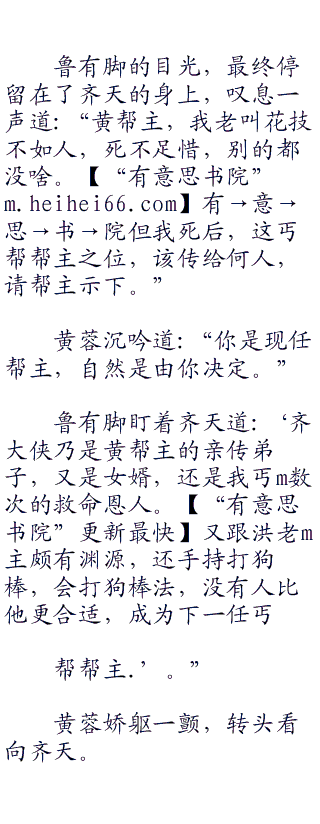 鲁有脚的目光，最终停
留在了齐天的身上，叹息一
声道：“黄帮主，我老叫花技
不如人，死不足惜，别的都
没啥。【“有意思书院”
m.heihei66.com】有→意→
思→书→院但我死后，这丐
帮帮主之位，该传给何人，
请帮主示下。”
黄蓉沉吟道：“你是现任
帮主，自然是由你决定。”
鲁有脚盯着齐天道：‘齐
大侠乃是黄帮主的亲传弟
子，又是女婿，还是我丐m数
次的救命恩人。【“有意思
书院”更新最快】又跟洪老m
主颇有渊源，还手持打狗
棒，会打狗棒法，没有人比
他更合适，成为下一任丐
帮帮主.’。”
黄蓉娇躯一颤，转头看
向齐天。